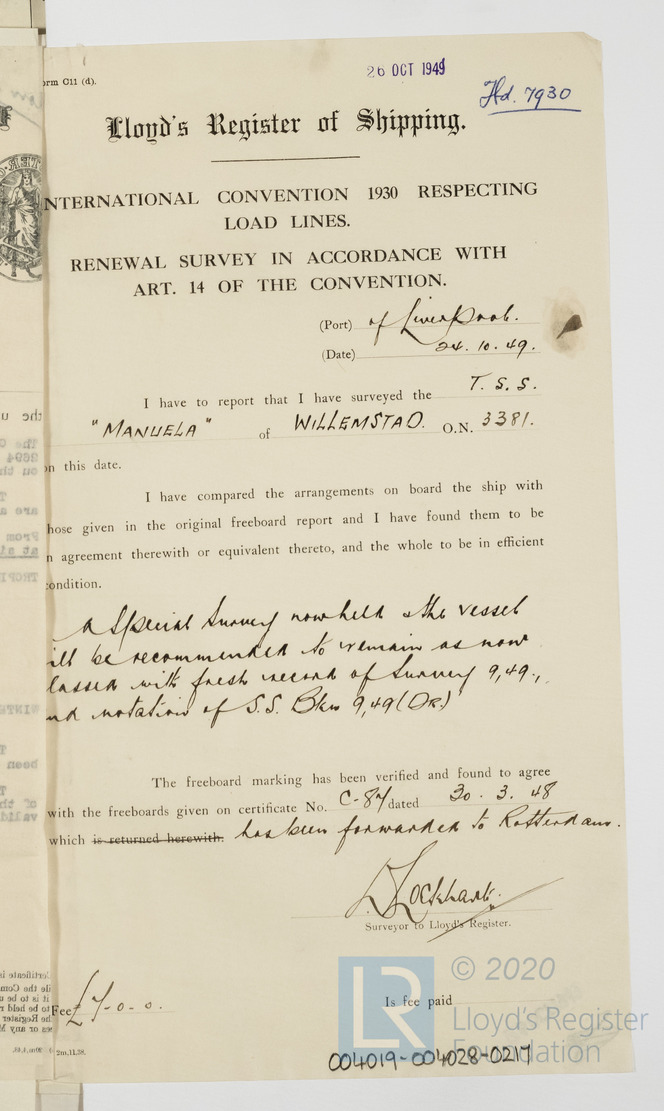 orm C11 (d).
26 OCT 1949
Hd. 7930
Lloyd's Register of Shipping.
NTERNATIONAL CONVENTION 1930 RESPECTING
LOAD LINES.
RENEWAL SURVEY IN ACCORDANCE WITH
ART. 14 OF THE CONVENTION.
(Port) of Liverpool.
(Date) 24.10.49.
I have to report that I have surveyed the T.S.S.
"MANUELA" of WILLEMSTAD. O.N. 3381.
n this date.
I have compared the arrangements on board the ship with
hose given in the original freeboard report and I have found them to be
n agreement therewith or equivalent thereto, and the whole to be in efficient
condition.
A Special Survey now held & the vessel
ill be recommended to remain as now
lassed with fresh record of Survey 9,49.,
nd notation of S.S. Bkn 9,49 (Dr.)
The freeboard marking has been verified and found to agree
with the freeboards given on certificate No. C-87 dated 30.3.48
which is returned herewith. has been forwarded to Rotterdam.
Lockhart.
Surveyor to Lloyd's Register.
Fee £7-0-0.
Is fee paid
2m,11,38.
LR
© 2020
Lloyd's Register
Foundation
004019-004028-0217